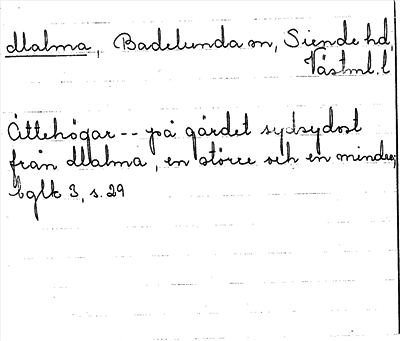 Malma, Badelunda sn, Siende hd,
Västml. l
Ättehögar -- på gärdet sydsydost
från Malma, en större och en mindre,
bglt 3, s. 29